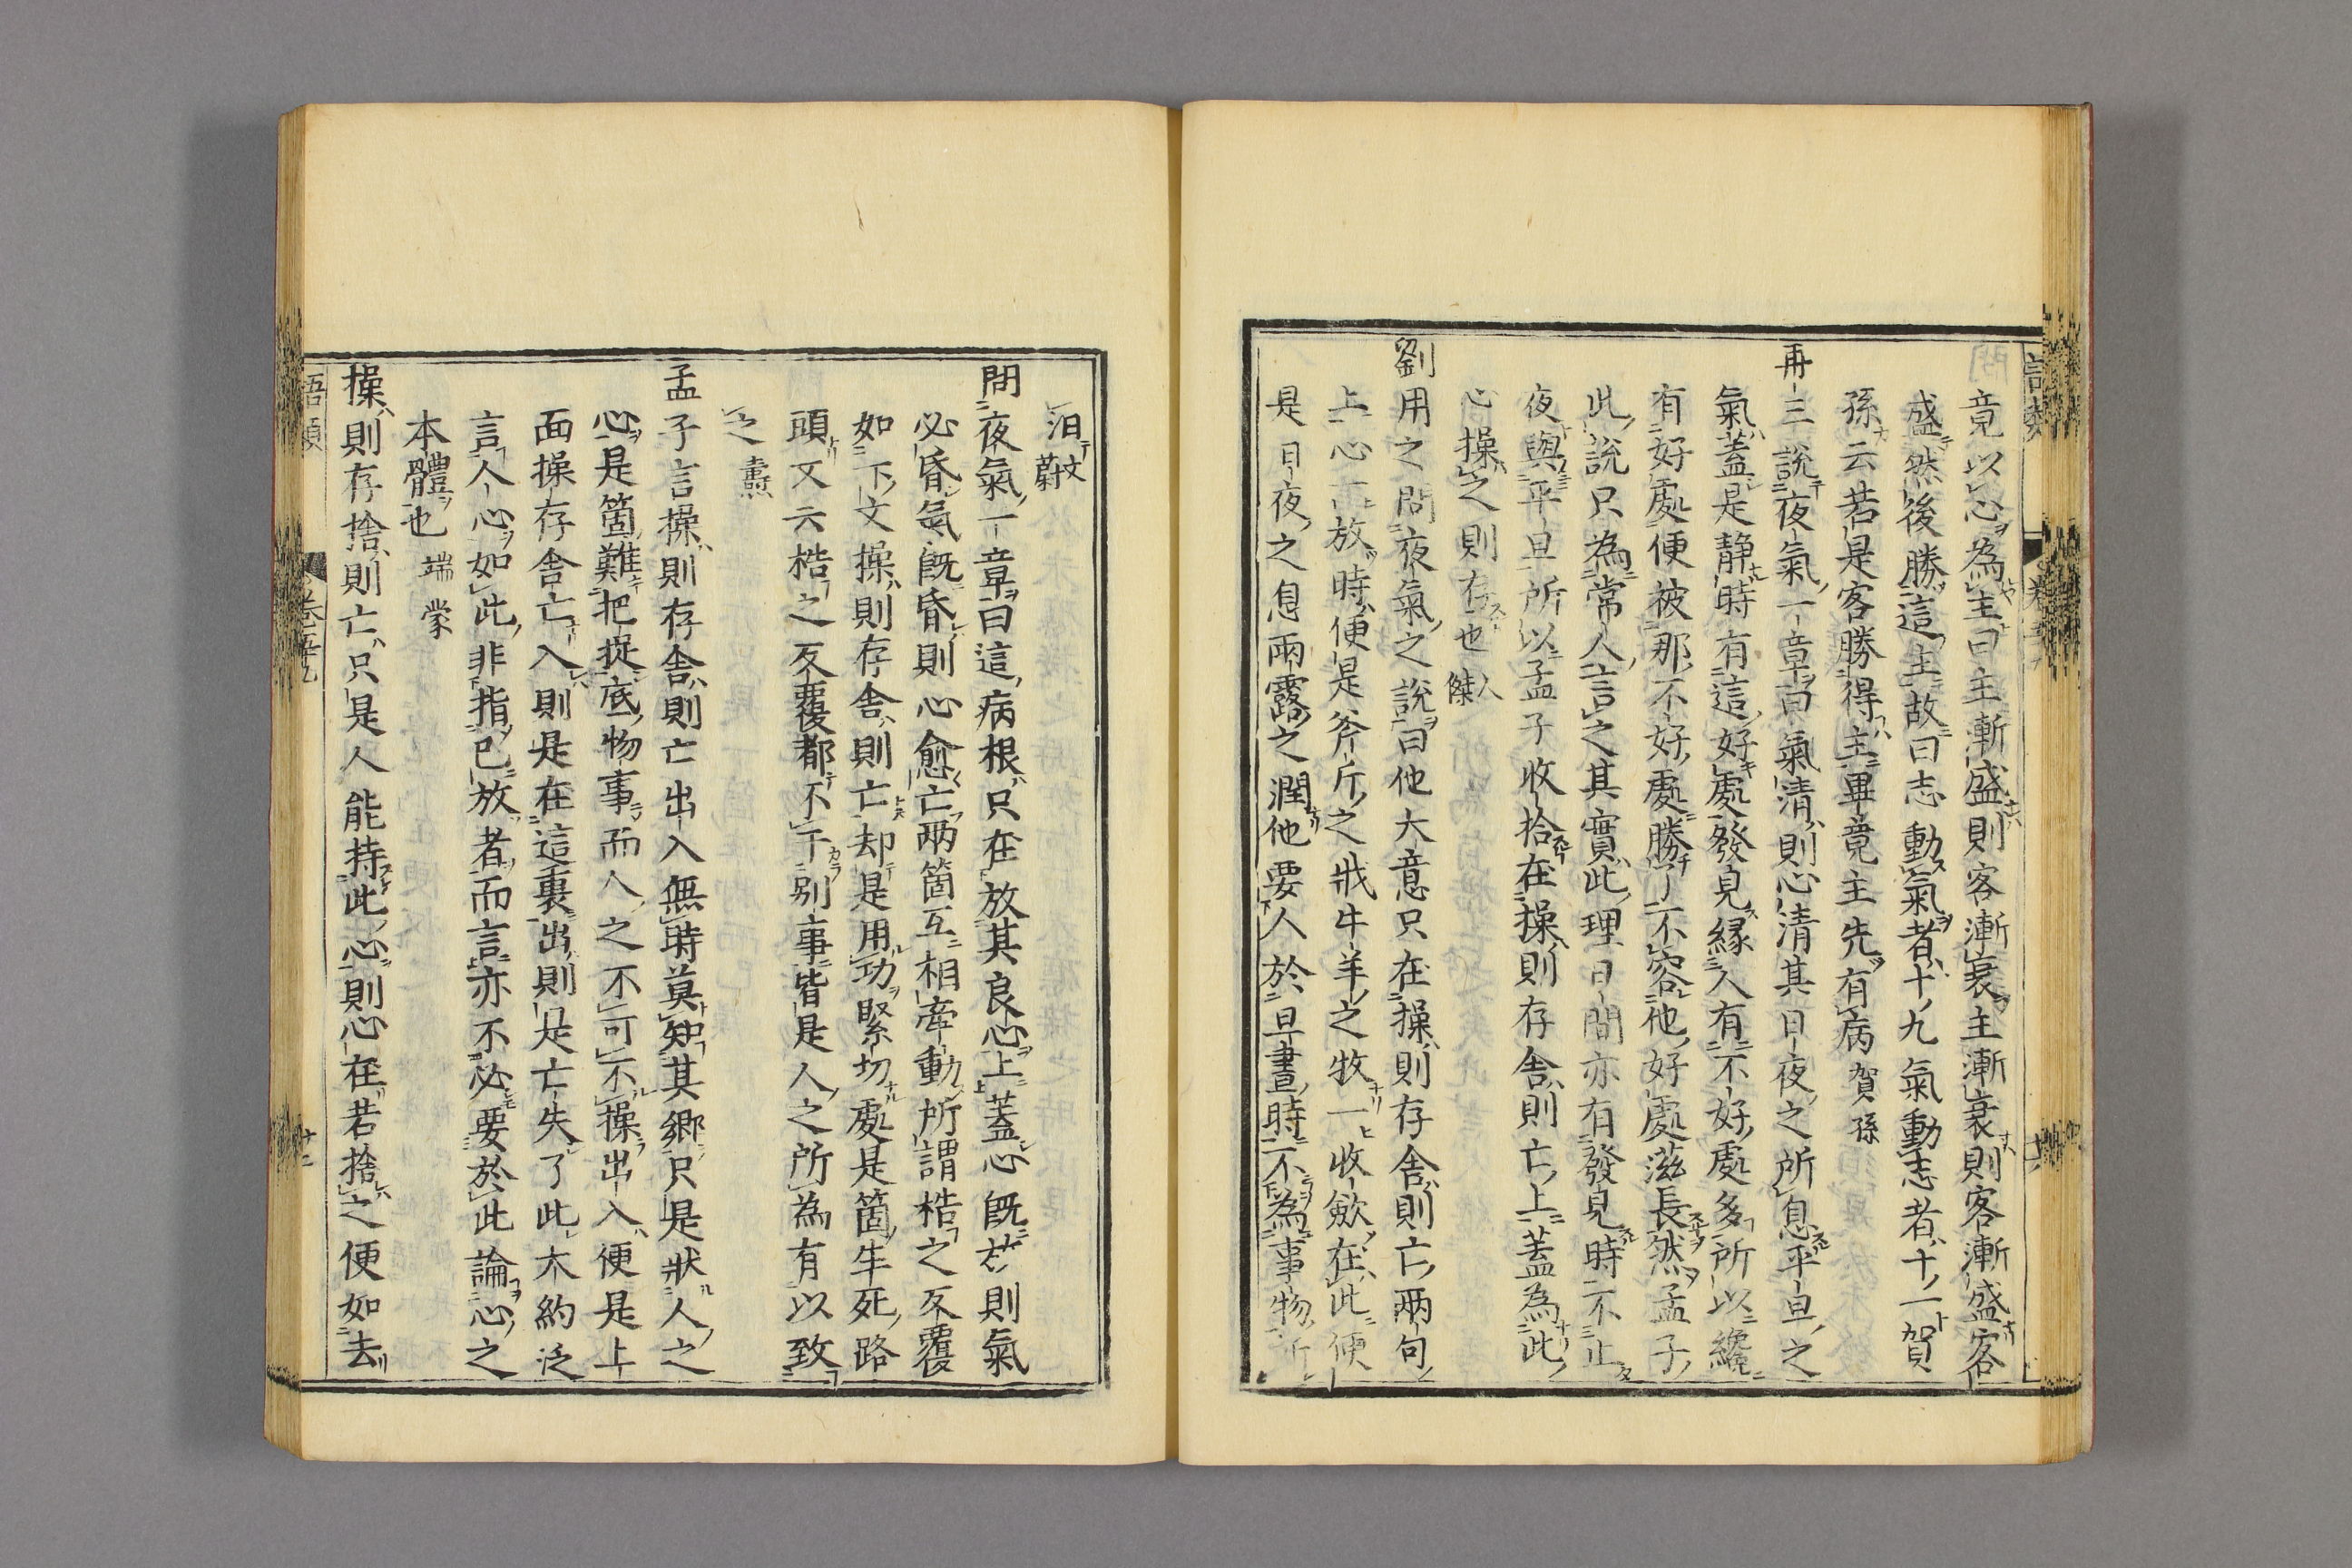 竟以心為主曰主漸盛則客漸衰主漸衰則客漸盛客
盛然後勝這主故曰志動氣者十九氣動志者十一賀
孫云若是客勝得主畢竟主先有病賀孫
再三說夜氣一章曰氣清則心清其日夜之所息平旦之
氣蓋是静時有這好處發見緣人有不好處多所以纔
有好處便被那不好處勝了不容他好處滋長然孟子
此說只為常人言之其實此理日間亦有發見時不止
夜與平旦所以孟子收拾在操則存舍則亡上蓋為此
心操之則存也人傑
劉用之問夜氣之說曰他大意只在操則存舍則亡兩句
上心一放時便是斧斤之戕牛羊之牧一收歛在此便
是日夜之息雨露之潤他要人於旦晝時不為事物所
汩文蔚
問夜氣一章曰這病根只在放其良心上蓋心既放則氣
必昏氣既昏則心愈亡兩箇互相牽動所謂梏之反覆
如下文操則存舍則亡却是用功緊切處是箇生死路
頭又云梏之反覆都不干別事皆是人之所為有以致
之燾
孟子言操則存舍則亡出入無時莫知其鄉只是狀人之
心是箇難把捉底物事而人之不可不操出入便是上
面操存舍亡入則是在這裏出則是亡失了此大約泛
言人心如此非指已放者而言亦不必要於此論心之
本體也端蒙
操則存捨則亡只是人能持此心則心在若捨之便如去
語類 卷五十九 十二